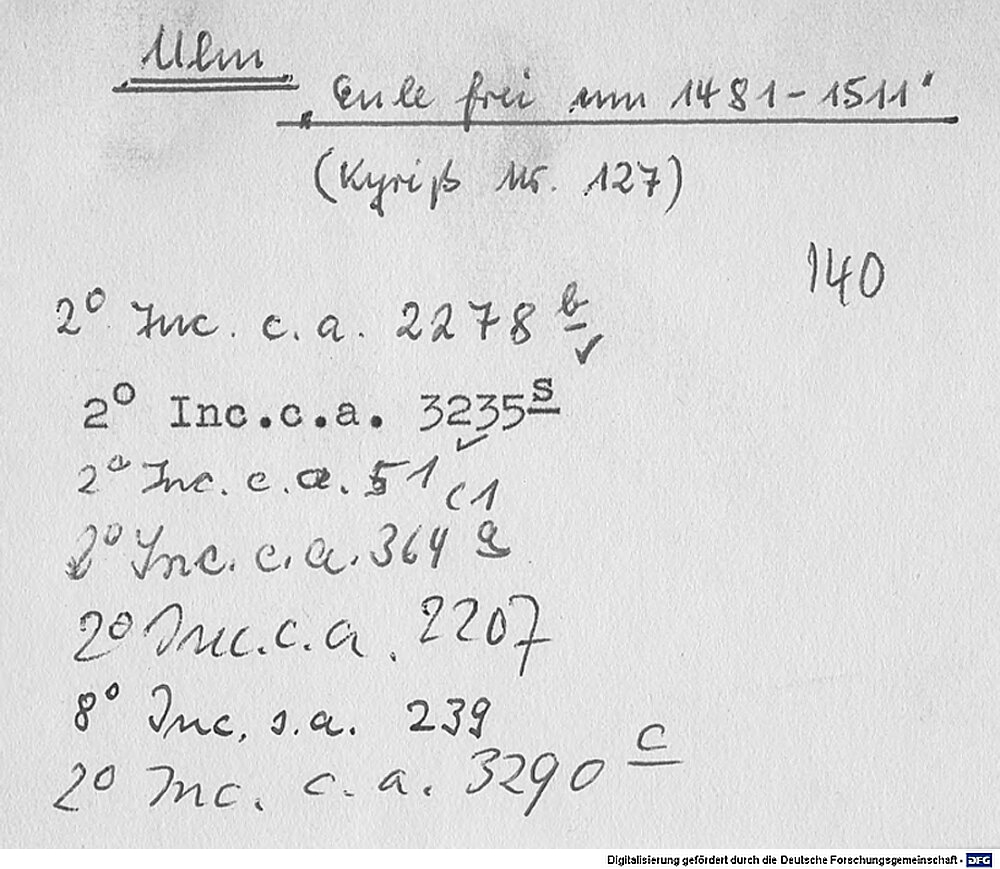 Ulm
Eule frei um 1481-1511
(Kyriß Nr. 127)
140
2° Inc. c. a. 2278 b
2° Inc.c.a. 3235s
2° Inc. c. a. 51 c1
2° Inc. c. a. 364 a
2° Inc. c. a. 2207
8° Inc. s. a. 239
2° Inc. c. a. 3290 c
Digitalisierung gefördert durch die Deutsche Forschungsgemeinschaft - DFG